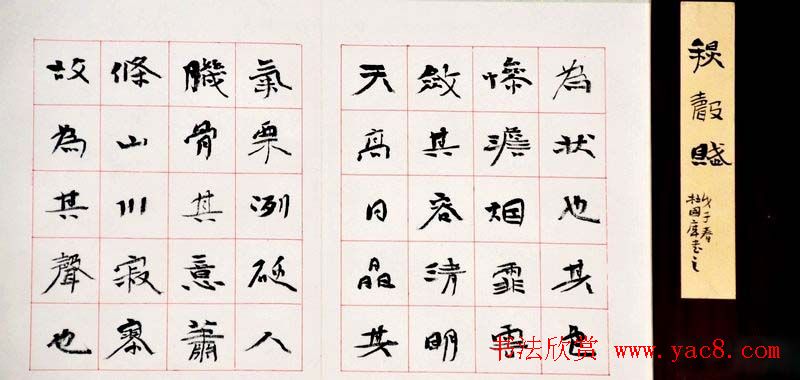 秋聲賦
戊子春
為狀也其色
慘澹烟霏雲
斂其容清明
天高日晶其
氣栗冽砭人
𦠄骨其意蕭
條山川寂寥
故為其聲也
书法欣赏 www.yac8.com